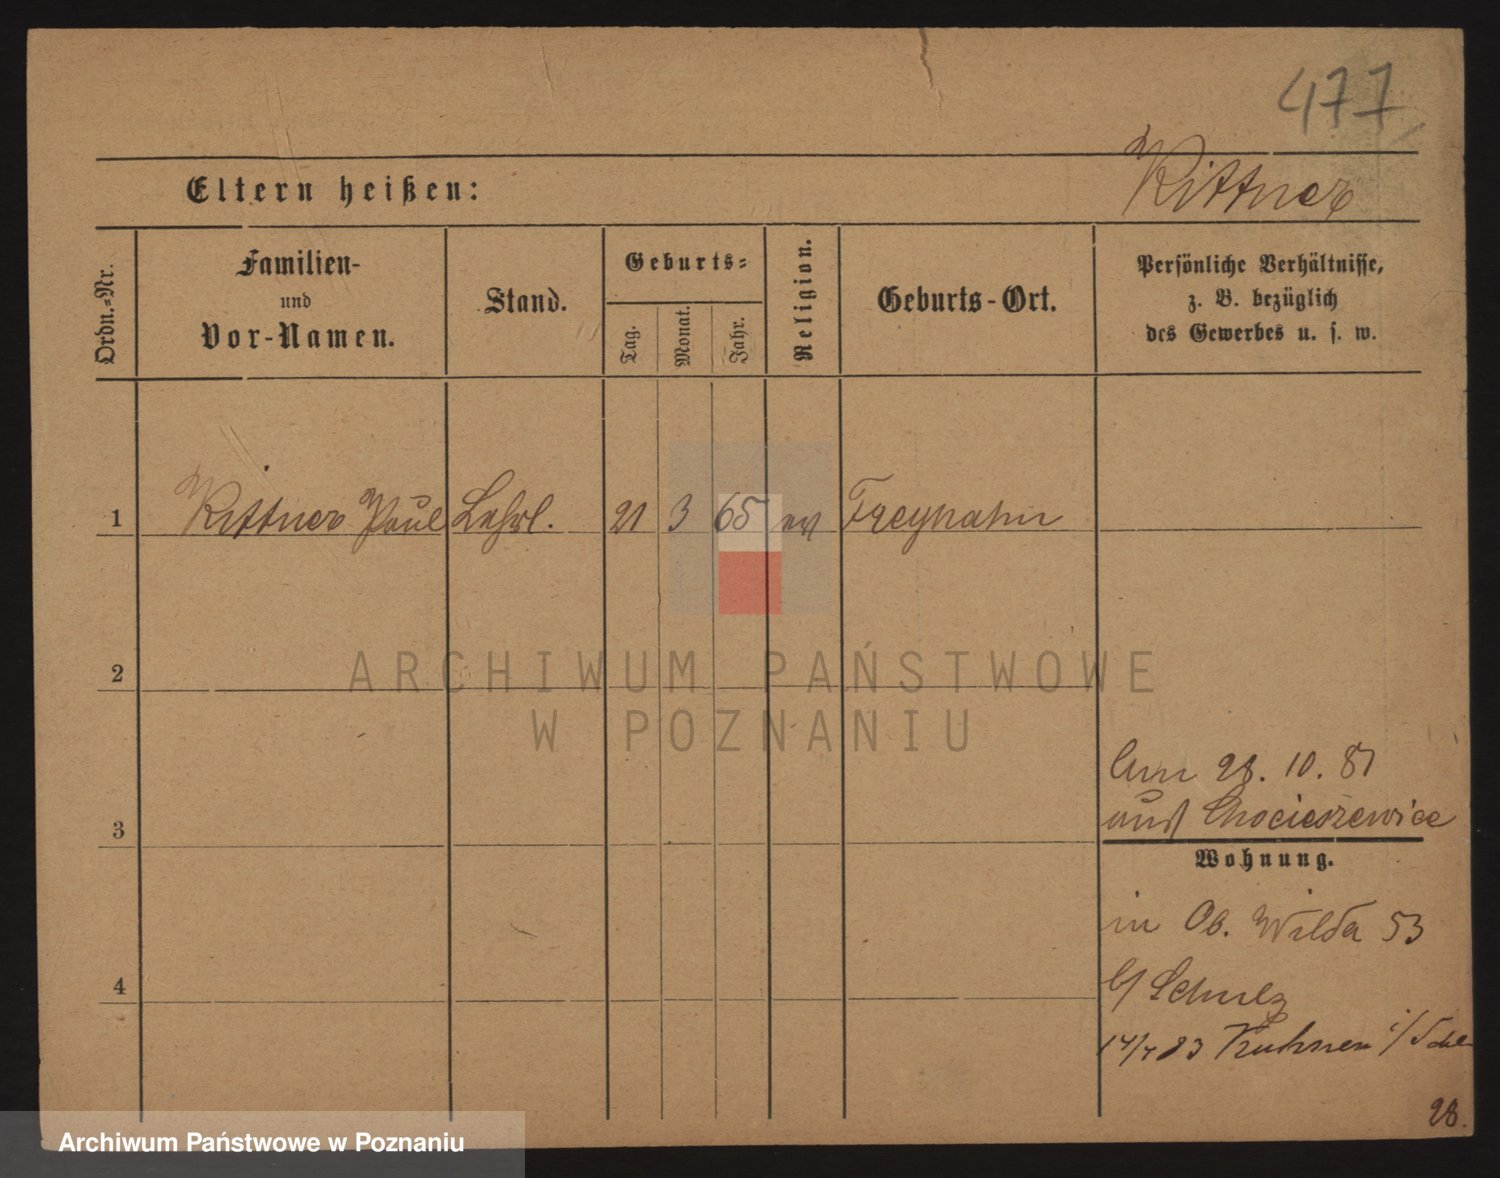 477
Rittner
Eltern heißen:
Ordn.-Nr.
Familien-
und
Vor-Namen.
Stand.
Geburts-
Tag.
Monat.
Jahr.
Religion.
Geburts-Ort.
Persönliche Verhältnisse,
z. B. bezüglich
des Gewerbes u. s. w.
1 Rittner Paul Lehrl. 21 3 65 ev Freyhahn
2
3
4
28. 10. 81
aus Chocieszewice
Wohnung.
in Ob. Wilda 53
b/ Schulz
14/7 83
28.
ARCHIWUM PAŃSTWOWE
W POZNANIU
Archiwum Państwowe w Poznaniu